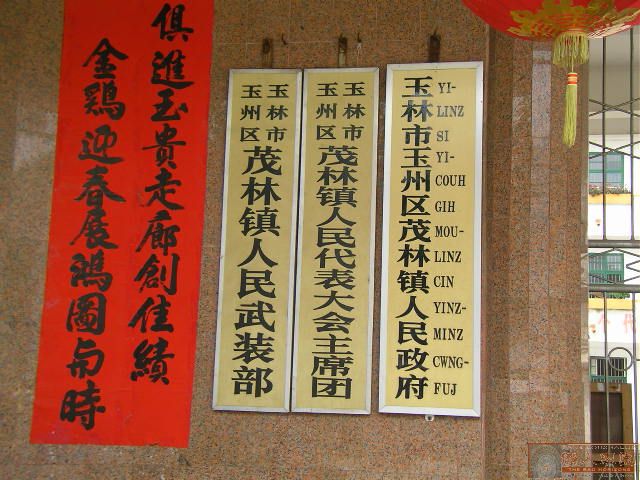 金鷄迎春展鴻圖与時
俱進玉貴走廊創佳績
玉林市
玉州区
茂林镇人民武装部
玉林市
玉州区
茂林镇人民代表大会主席团
玉林市玉州区茂林镇人民政府
YI-
LINZ
SI
YI-
COUH
GIH
MOU-
LINZ
CIN
YINZ-
MINZ
CWNG-
FUJ